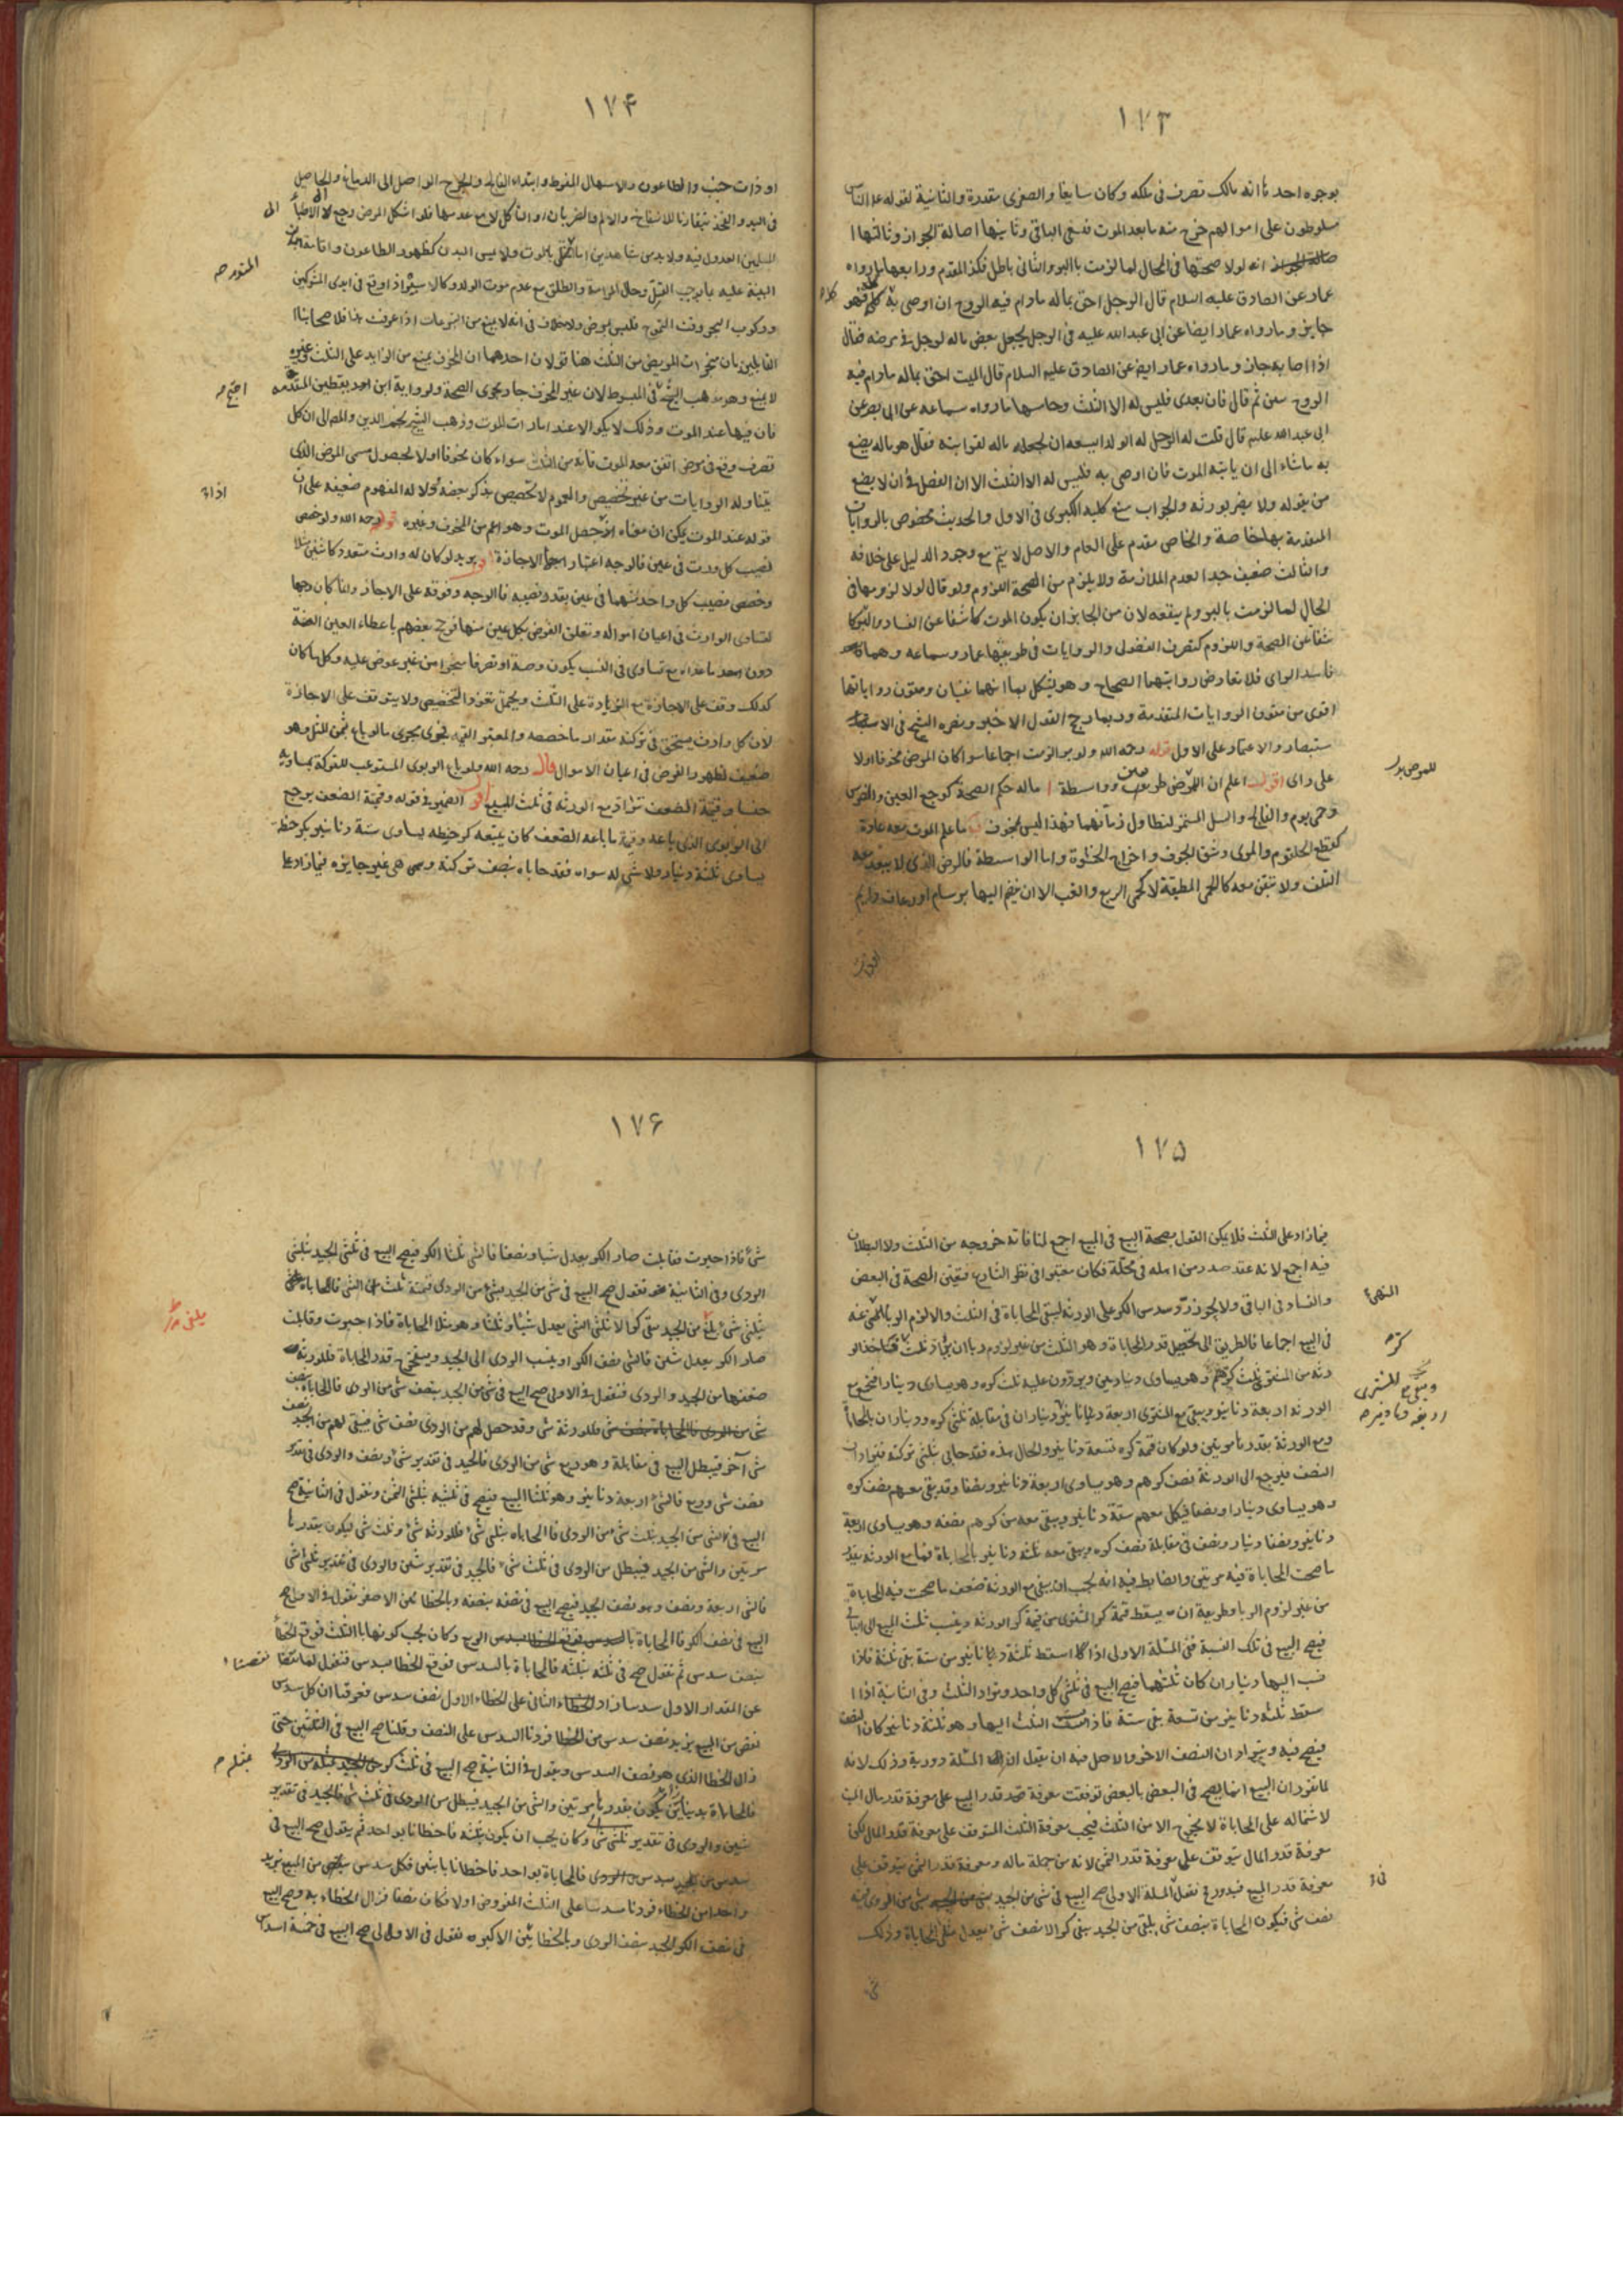 ١٧٣
بوجوه احدها انه مالك تصرف فى ملكه وكان سايغا والصغرى مقدرة والثانية لقوله عليه الناس
مسلطون على اموالهم خرج منه ما بعد الموت فبقى الباقى وثانيها اصالة الجواز وثالثها ا
انه لولا صحتها فى الحال لما لزمت بالبرء والثانى باطل فكذا المقدم ورابعها ما رواه
عمار عن الصادق عليه السلام قال الرجل احق بماله ما دام فيه الروح ان اوصى به كله فهو
جايز وما رواه عمار ايضا عن ابى عبد الله عليه فى الرجل يجعل بعض ماله لرجل فى مرضه فقال
اذا ابانه جاز وما رواه عمار ايضا عن الصادق عليه السلام قال الميت احق بماله ما دام فيه
الروح يبين ثم قال فان تعدى فليس له الا الثلث وخامسها ما رواه سماعه عن ابى بصير عن
ابى عبد الله عليه قال قلت له الرجل له الولد ايسعه ان يجعل ماله لقرابته فقال هو ماله يصنع
به ما شاء الى ان ياتيه الموت فان اوصى به فليس له الا الثلث الا ان الفضل فى ان لا يضيع
من يعوله ولا يضر بورثه والجواب منع كليه الكبرى فى الاول والحديث مخصوص بالروايات
المتقدمة بها خاصة والخاص مقدم على العام والاصل لا يتم مع وجود الدليل على خلافه
والثالث ضعيف جدا لعدم الملازمة ولا يلزم من الصحة اللزوم ولو قال لولا لزومها فى
الحال لما لزمت بالبرء لم ينفعه لان من الجايز ان يكون الموت كاشفا عن الفساد والبرء كا
شفا عن الصحة واللزوم كتصرف الفضولى والروايات فى طريقها عمار وسماعه وهما
فاسد الراى فلا تعارض روايتهما الصحاح وهو يشكل بما انهما ثقتان ومتون رواياتها
اقوى من متون الروايات المتقدمة وربما رجح القول الاخير ونصره الشيخ فى الا
ستبصار والاعتماد على الاول قوله رحمه الله ولو برا لزمت اجماعا سوا كان المرض مخوفا اولا
على راى اقول اعلم ان للمرض طرفين وواسطة ا ماله حكم الصحة كوجع العين والضرس
وحمى يوم والفالج والسل المستمر لتطاول زمانهما فهذا ليس بمخوف ب ما علم الموت معه عادة
كقطع الحلقوم والمرى وشق الجوف واخراج الحشوة واما الواسطة فالمرض الذى لا يبعد معه
التلف ولا تيقن معه كالحمى المطبقة لا كحمى الربع والغب الا ان ينضم اليها برسام او رعاف دايم
للمرض بدل
١٧۴
او ذات جنب والطاعون والاسهال المفرط وابتداء الفالج والجرح الواصل الى الدماغ والحاصل
فى اليد والفخذ مقارنا للانتفاخ والالم والضربان اولا كل لا مع عدمها فلو اشكل المرض رجع الى الاطباء
المسلمين العدول فيه ولا بد من شاهدين اما القتل بالموت ولا ليس البدن كظهور الطاعون واقامة
البينة عليه بما يوجب القتل وحال المرامة والطلق مع عدم موت الولد وكالاسير اذا وقع فى ايدى المشركين
وركوب البحر وقت التموج فليس بمرض ولا خلاف فى انه لا يمنع من التبرعات اذا عرفت هذا فلاصحابنا ا
القايلين بان منجزات المريض من الثلث هنا قولان احدهما ان المخوف يمنع من الزايد على الثلث وغيره
لا يمنع وهو مذهب الشيخ فى المبسوط لان غير المخوف جار مجرى الصحة ولرواية ابن يقطين المتقدمه
فان فيها عند الموت وذلك لا يكون الا عند امارات الموت وذهب الشيخ نجم الدين والمص الى ان كل
تصرف وقع فى مرض اتفق معه الموت فانه من الثلث سواء كان مخوفا اولا لحصول مسمى المرض الذى
يتناوله الروايات من غير تخصيص والعموم لا تخصيص بذكر بعضه ودلالة المفهوم ضعيفه على ان
قوله عند الموت يمكن ان معناه اذا حصل الموت وهو اعم من المخوف وغيره قوله رحمه الله ولو خص
نصيب كل ورث فى عين فالوجه اعتبار الاجازة اقول يريد لو كان له وارث متعدد كاشين مثلا
وخصص نصيب كل واحد منهما فى عين بقدر نصيبه فالوجه وقوفه على الاجاز وانما كان وجها
لتساوى الوارث فى اعيان امواله وتعلق الغرض بكل عين منها فترجيح بعضهم باعطاء العين المعينة
دون ما عداه مع تساوى فى النسب يكون وصية او تصرفا منجزا من غير عوض عليه وكل ما كان
كذلك وقف على الاجازة مع الزيادة على الثلث ويحتمل نفوذ التخصيص ولا يتوقف على الاجازة
لان كل وارث يستحق فى تركته مقدار ما خصصه والمعتبر القيمة فجرى مجرى ما لو باع بثمن المثل وهو
ضعيف لظهور الغرض فى اعيان الاموال قال رحمه الله ولو باع الربوى المستوعب للتركة بمساويه
جنسا وقيمة الضعف تراد مع الورثه فى ثلث المبيع اقول الضمير فى قوله وقيمة الضعف يرجع
الى الربوى الذى باعه وقيمة ما باعه الضعف كان يبيعه كر حنطه يساوى ستة دنانير بكر حنطة
يساوى ثلثة دنانير ولا شى له سواه فقد حاباه بنصف تركته وهى غير جايزه فيما زاد على
المشهورة
١٧۵
فيما زاد على الثلث فلا يمكن القول بصحة البيع فى المبيع اجمع لمنافاته خروجه من الثلث ولا البطلان
فيه اجمع لانه عقد صدر من اهله فى محله فكان معتبرا فى نظر الشارع فيقتضى الصحة فى البعض
والفساد فى الباقى ولا يجوز رد سدس الكر على الورثه ليبقى المحاباة فى الثلث والا لزم الربا المنهى عنه
فى البيع اجماعا فالطريق الى تحصيل قدر المحاباة وهو الثلث من غير لزوم ربا ان يراد ثلث فياخذ الو
رثه من المشترى ثلث كرهم وهو يساوى دينارين ويردون عليه ثلث كره وهو يساوى دينارا فيجتمع مع
الورثه اربعة دنانير ويبقى مع المشترى اربعة دنانير وديناران فى مقابلة ثلثى كره وديناران بالمحاباة
ومع الورثة بقدرها مرتين ولو كان قيمة كره تسعة دنانير والحال هذه فقد حابى بثلثى تركته فيترادان
النصف فيرجع الى الورثة نصف كرهم وهو يساوى اربعة دنانير ونصفا وقد بقى معهم نصف كره
وهو يساوى دينارا ونصفا فيكمل معهم ستة دنانير ويبقى معه من كرهم نصفه وهو يساوى اربعة
دنانير ونصفا دينار ونصف فى مقابلة نصف كره ويبقى معه ثلثة دنانير بالمحاباة فيما مع الورثه بقدر
ما صحت المحاباة فيه مرتين والضابط فيه انه يجب ان يبقى مع الورثة ضعف ما صحت فيه المحاباة
من غير لزوم الربا وطريقه ان يسقط قيمة كر المشترى من قيمة كر الورثه وينسب ثلث المبيع الى الباقى
فيصح البيع فى تلك النسبة ففى المسئلة الاولى اذا اسقط ثلثة دنانير من ستة بقى ثلثة فاذا
نسب اليها ديناران كان ثلثيها فيصح البيع فى ثلثى كل واحد ويراد الثلث وفى الثانية اذا ا
سقط ثلثة دنانير من تسعة بقى ستة فاذا نسبت الثلث اليها وهو ثلثة دنانير كان النصف
فيصح فيه ويترادان النصف الاخر والاصل فيه ان يقول ان المسئلة دورية وذلك لانه
لما تقرر ان البيع انما يصح فى البعض بالبعض توقفت معرفة قدر المبيع على معرفة قدر مال الميت
لاشتماله على المحاباة لا يخرج الا من الثلث فيجب معرفة الثلث المتوقف على معرفة قدر المال لكن
معرفة قدر المال يتوقف على معرفة قدر الثمن لانه من جملة ماله ومعرفة قدر الثمن يتوقف على
معرفة قدر المبيع فيدور فنقول فى المسئلة الاولى صح البيع فى شى من الجيد بشى من الردى قيمته
نصف شى فيكون المحاباة بنصف شى يبقى من الجيد كر الا نصف شى يعدل مثلى المحاباة وذلك
١٧۶
شئ فاذا جبرت وقابلت صار الكر يعدل شيا ونصفا فالشى ثلثا الكر فيصح البيع فى ثلثى الجيد بثلثى
الردى وفى الثانية نقول صح البيع فى شى من الجيد بشى من الردى قيمته ثلث الشى فالمحاباة
بثلثى شى يبقى من الجيد كر الا ثلثى شى يعدل شيا وثلثا وهو مثلا المحاباة فاذا جبرت وقابلت
صار الكر يعدل شئين فالشى نصف الكر او ينسب الردى الى الجيد ويستخرج قدر المحاباة فللورثه
ضعفها من الجيد والردى فنقول فى الاولى صح البيع فى شى من الجيد بنصف شى من الردى فالمحاباة بنصف
شى فللورثة شى وقد حصل لهم من الردى نصف شى فيبقى لهم من الجيد نصف
شى آخر فيبطل البيع فى مقابلة وهو ربع شى من الردى فالجيد فى تقدير شى ونصف والردى فى تقدير
نصف شى وربع فالشى اربعة دنانير وهو ثلثا المبيع فيصح فى ثلثيه بثلثى الثمن ونقول فى الثانية صح
البيع فى شى من الجيد بثلث شى من الردى فالمحاباه بثلثى شى فللورثه شى وثلث شى ليكون بقدرها
مرتين والشى من الجيد فيبطل من الردى فى ثلث شى فالجيد فى تقدير شئين والردى فى تقدير ثلثى شى
فالشى اربعة ونصف وهو نصف الجيد فيصح البيع فى نصفه بنصفه وبالخطاين الاصغر نقول فى الاولى صح
البيع فى نصف الكر فالمحاباة بالربع وكان يجب كونها بالثلث فوقع الخطأ
بنصف سدس ثم نقول صح فى ثلثه بثلثه فالمحاباة بالسدس فوقع الخطا بسدس فنقول لما نقصنا
عن المقدار الاول سدسا زاد الخطاء الثانى على الخطاء الاول نصف سدس فعرفنا ان كل سدس
نقص من المبيع يزيد نصف سدس من الخطا فزدنا السدس على النصف وقلنا صح البيع فى الثلثين حتى
زال الخطا الذى هو نصف السدس ونقول فى الثانية صح البيع فى ثلث كر
فالمحاباة بدينارين فيكون بقدرها مرتين والشى من الجيد فيبطل من الردى فى ثلث شى فالجيد فى تقدير
شيين والردى فى تقدير ثلثى شى وكان يجب ان يكون بثلثه فاخطانا بواحد ثم نقول صح البيع فى
سدس بسدس فالمحاباة بواحد فاخطانا باثنين فكل سدس ينقص من المبيع يزيد
واحدا من الخطاء فزدنا سدسا على الثلث المفروض اولا فكان نصفا فزال الخطاء به وصح البيع
فى نصف الكر الجيد بنصف الردى وبالخطاين الاكبر نقول فى الاولى صح البيع فى خمسة اسداس